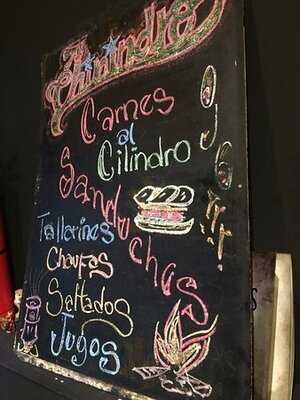 Carnes
al
Cilindro
Sanduchas
Tallarines
Chaufas
Saltados
Jugos